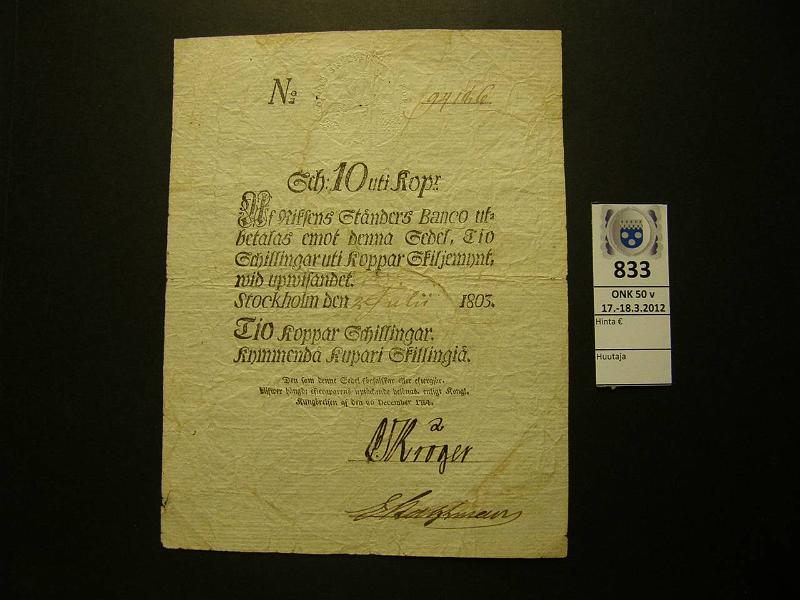 No
Sch: 10 uti Kop:r
Af Riksens Ständers Banco ut-
betalas emot denna Sedel, Tio
Schillingar uti Koppar Skiljemynt,
wid upwisandet.
Stockholm den 2 Julii 1803.
Tio Koppar Schillingar.
Kymmendä Kupari Skillingiä.
Den som denne Sedel förfalskar eller eftergiör,
Kungörelsen af den 20 December
Kröger
833
ONK 50 v
17.-18.3.2012
Hinta €
Huutaja